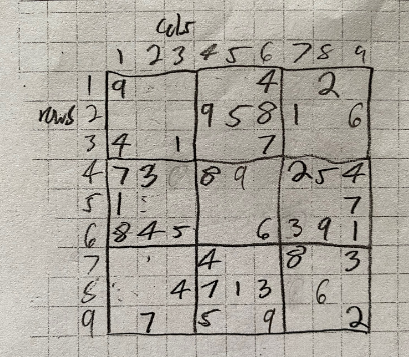 cols
1 2 3 4 5 6 7 8 9
1 9 4 2
rows 2 9 5 8 1 6
3 4 1 7
4 7 3 8 9 2 5 4
5 1 7
6 8 4 5 6 3 9 1
7 4 8 3
8 4 7 1 3 6
9 7 5 9 2